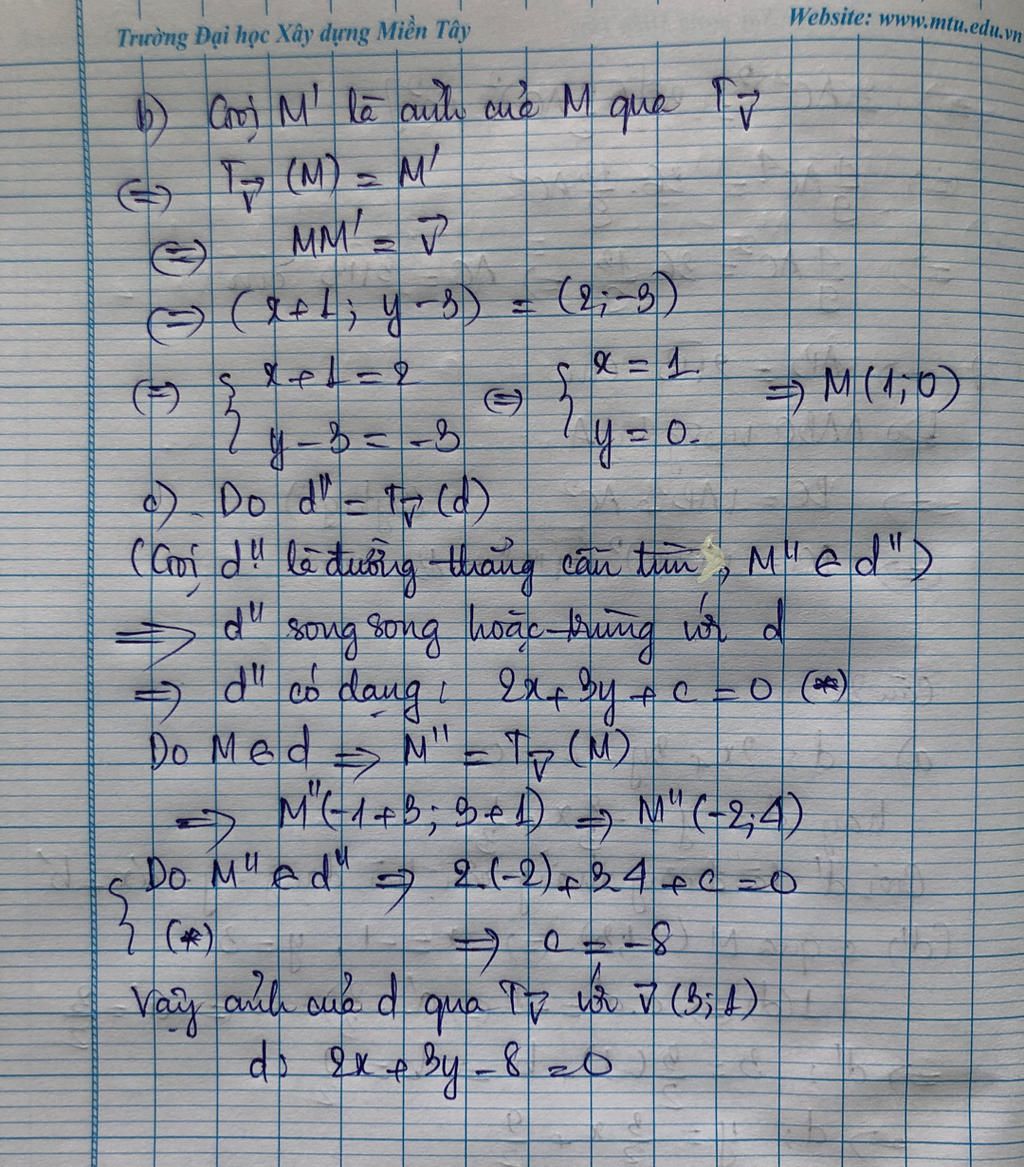 Trường Đại học Xây dựng Miền Tây
Website: www.mtu.edu.vn
b) Gọi M' là ảnh của M qua T_v⃗
(=) T_v⃗ (M) = M'
(=) MM' = v⃗
(=) (x+1; y-3) = (2;-3)
(=) { x+1=2 (=) { x=1 => M(1;0)
y-3=-3 y=0.
c). Do d" = T_v⃗ (d)
(Gọi d" là đường thẳng cần tìm, M" ∈ d")
=> d" song song hoặc trùng với d
=> d" có dạng: 2x+3y+c=0 (*)
Do M ∈ d => M" = T_v⃗ (M)
=> M"(-1+3; 3+1) => M"(-2;4)
{ Do M" ∈ d" => 2.(-2)+3.4+c=0
(*) => c=-8
Vậy ảnh của d qua T_v⃗ với v⃗ (3;1)
d: 2x+3y-8=0